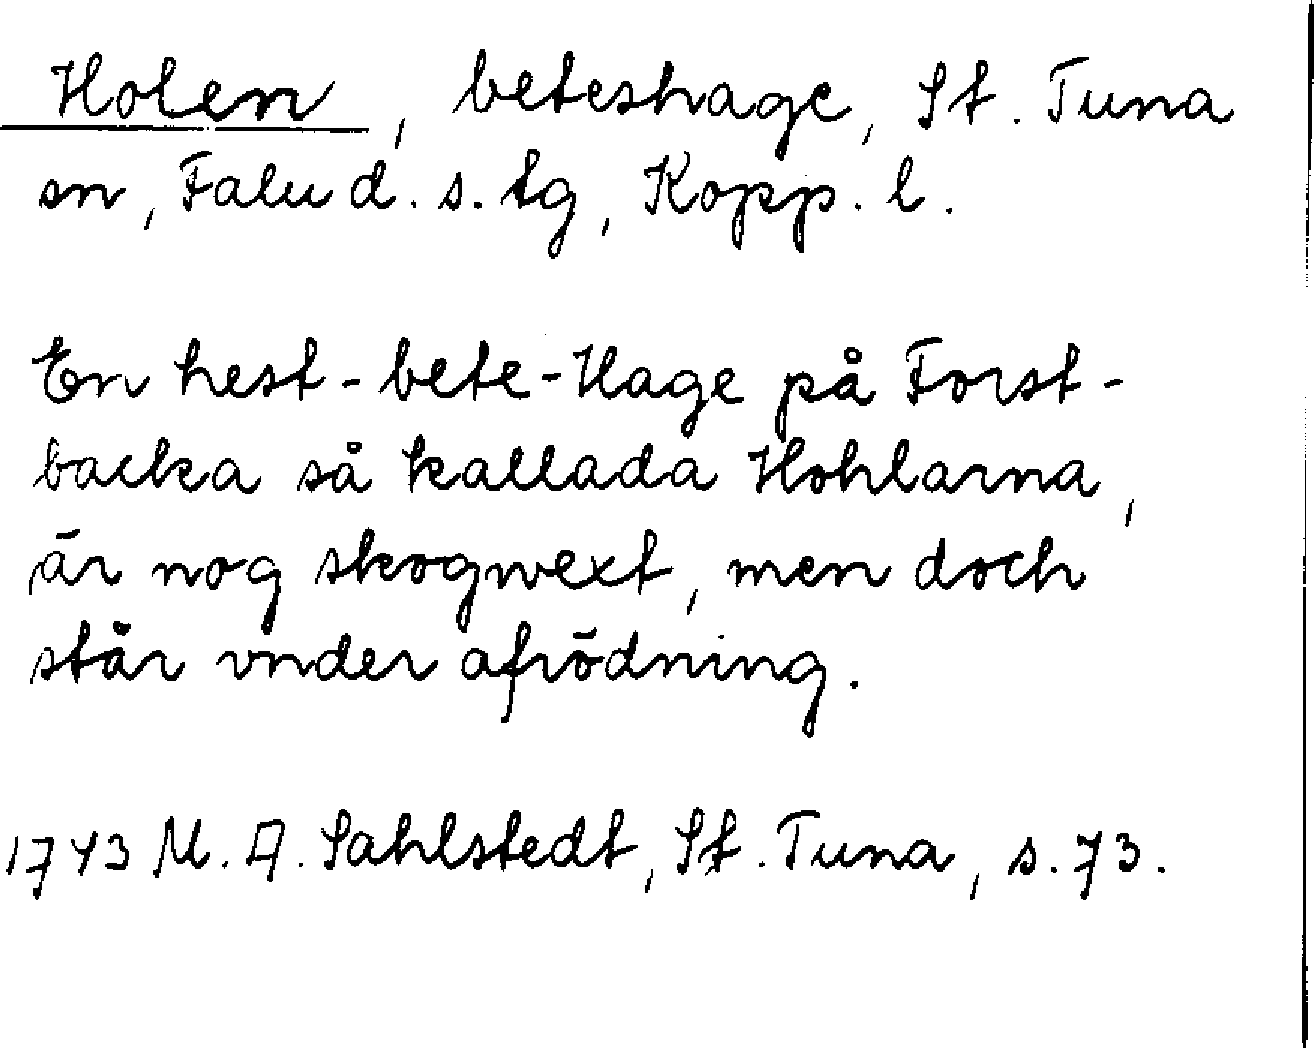 Holen, beteshage, St. Tuna
sn, Falu d. s. tg, Kopp. l.
En hest-bete-Hage på Forst-
backa så kallada Hohlarna,
är nog skogwext, men doch
står vnder afrödning.
1743 M. A. Sahlstedt, St. Tuna, s. 73.